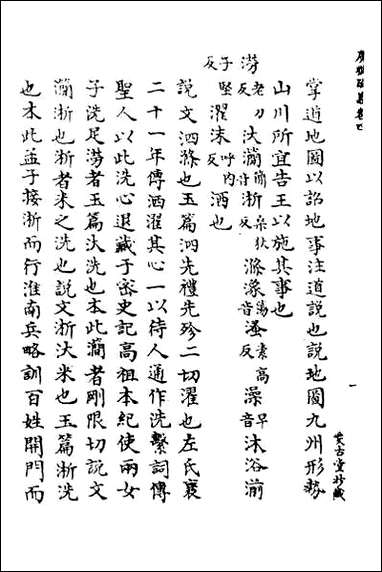 廣雅疏義卷四
掌道地圖以詔地事注道說也說地圖九州形勢
山川所宜告王以施其事也
澇老刀反汏𤄷簡淅桑狄反滌潒蕩溞素高反澡音早沐浴湔
子堅反濯沬呼內反洒也
說文洒滌也玉篇洒先禮先殄二切濯也左氏襄
二十一年傳洒濯其心一以待人通作洗繫詞傳
聖人以此洗心退藏于密史記高祖本紀使兩女
子洗足澇者玉篇汏洗也本此𤄷者剛限切說文
𤄷淅也淅者米之洗也說文淅汏米也玉篇淅洗
也本此孟子接淅而行淮南兵略訓百姓開門而
一
愛古堂抄藏